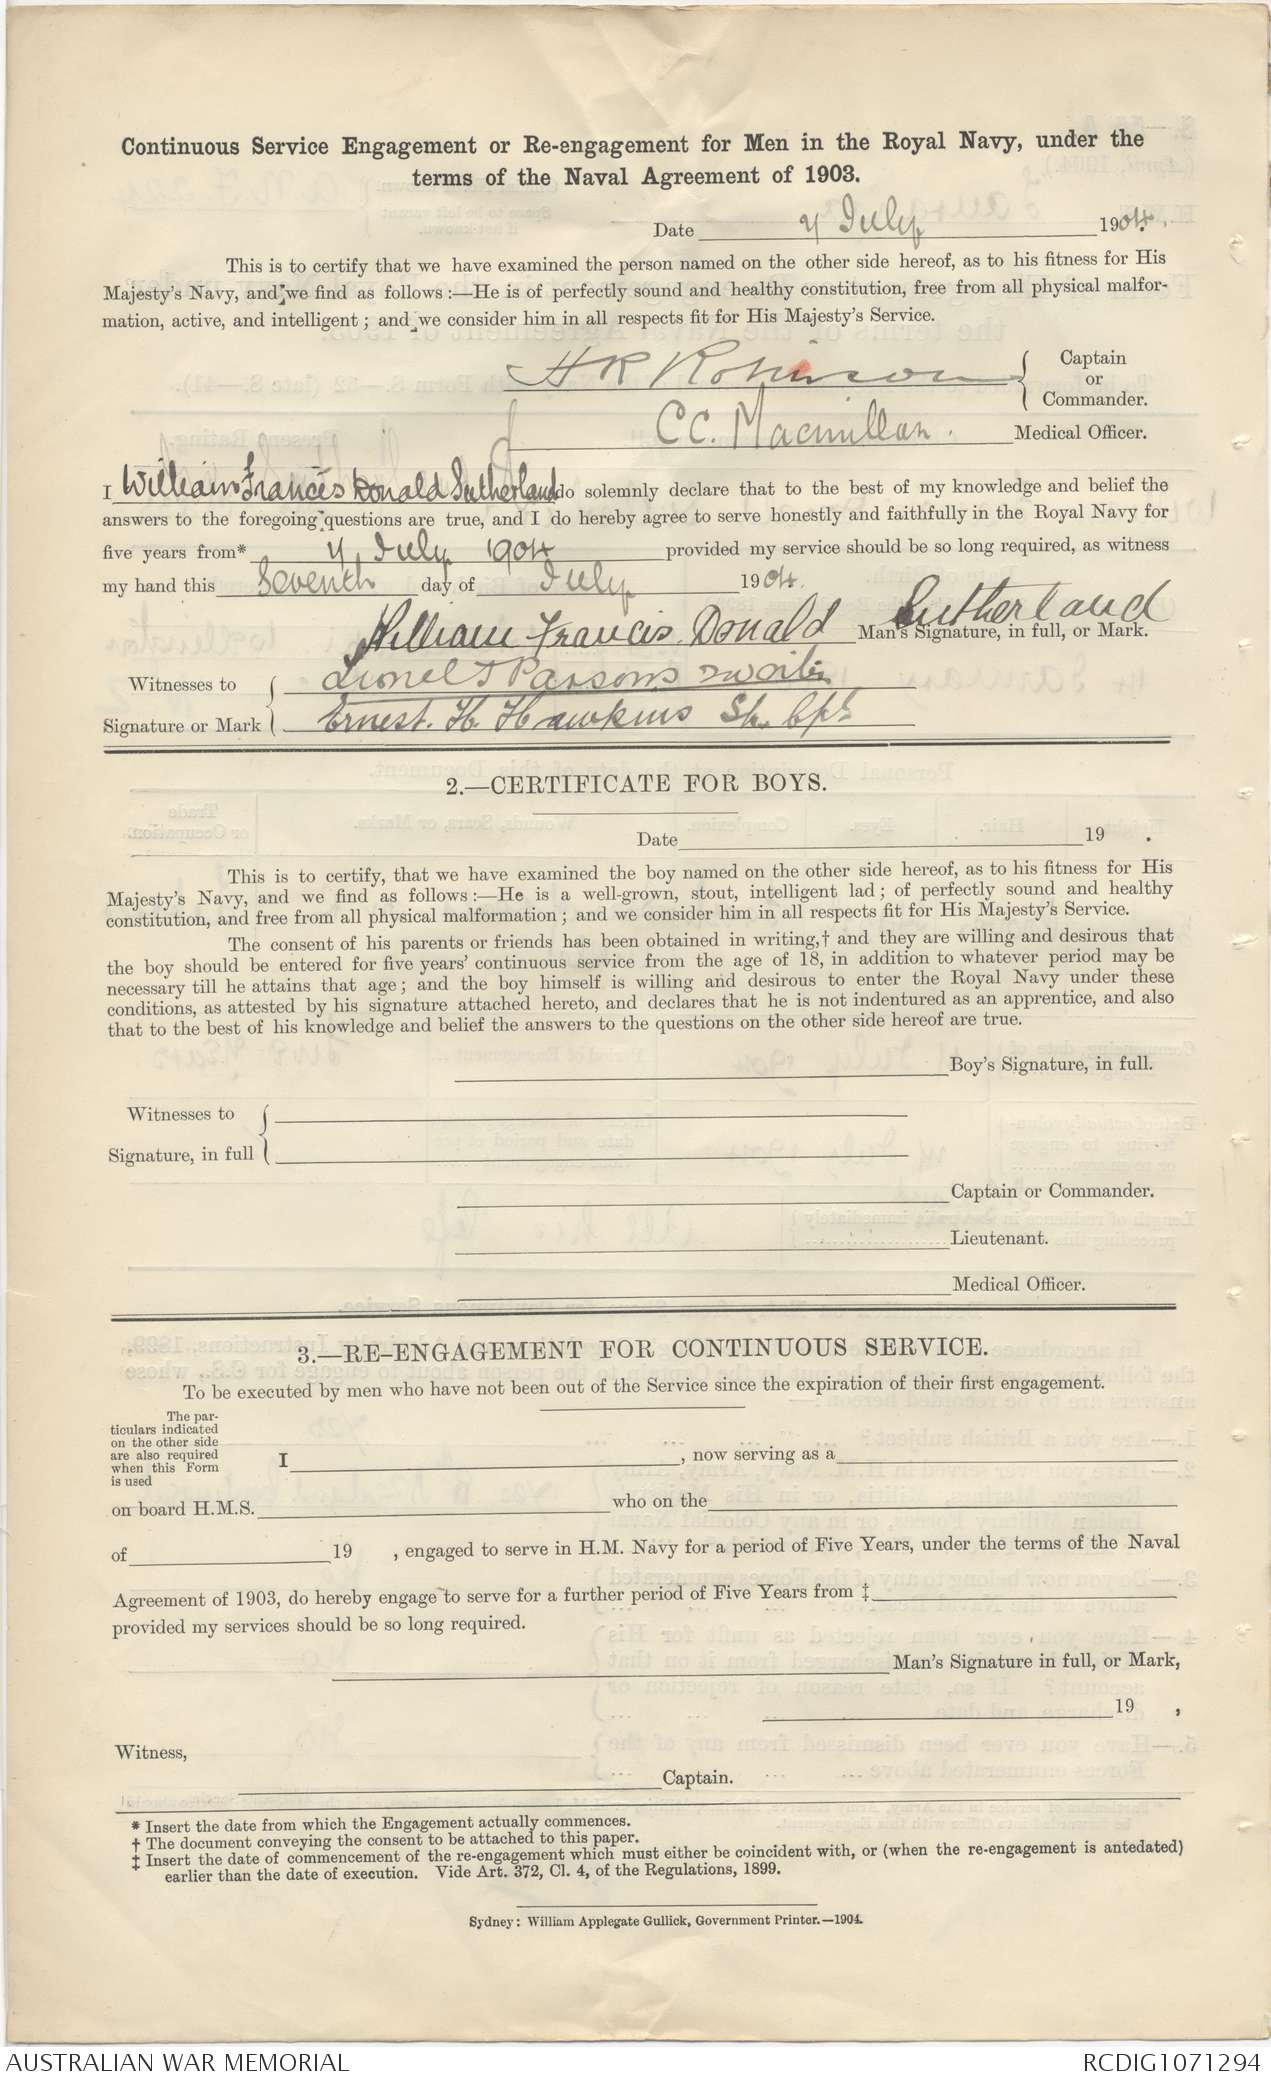 Continuous Service Engagement or Re-engagement for Men in the Royal Navy, under the
terms of the Naval Agreement of 1903.
Date 7 July 1904.
This is to certify that we have examined the person named on the other side hereof, as to his fitness for His
Majesty's Navy, and we find as follows :—He is of perfectly sound and healthy constitution, free from all physical malfor-
mation, active, and intelligent ; and we consider him in all respects fit for His Majesty's Service.
H R Robinson { Captain or Commander.
C C. Macmillan. Medical Officer.
I William Francis Donald Sutherland do solemnly declare that to the best of my knowledge and belief the
answers to the foregoing questions are true, and I do hereby agree to serve honestly and faithfully in the Royal Navy for
five years from* 7 July 1904 provided my service should be so long required, as witness
my hand this Seventh day of July 1904.
William Francis Donald Sutherland Man's Signature, in full, or Mark.
Witnesses to { Lionel T Parsons
Signature or Mark { Ernest. H Hawkins Sh. Cpl
2.—CERTIFICATE FOR BOYS.
Date 19 .
This is to certify, that we have examined the boy named on the other side hereof, as to his fitness for His
Majesty's Navy, and we find as follows :—He is a well-grown, stout, intelligent lad ; of perfectly sound and healthy
constitution, and free from all physical malformation ; and we consider him in all respects fit for His Majesty's Service.
The consent of his parents or friends has been obtained in writing,† and they are willing and desirous that
the boy should be entered for five years' continuous service from the age of 18, in addition to whatever period may be
necessary till he attains that age ; and the boy himself is willing and desirous to enter the Royal Navy under these
conditions, as attested by his signature attached hereto, and declares that he is not indentured as an apprentice, and also
that to the best of his knowledge and belief the answers to the questions on the other side hereof are true.
Boy's Signature, in full.
Witnesses to
Signature, in full
Captain or Commander.
Lieutenant.
Medical Officer.
3.—RE-ENGAGEMENT FOR CONTINUOUS SERVICE.
To be executed by men who have not been out of the Service since the expiration of their first engagement.
The par-
ticulars indicated
on the other side
are also required
when this Form
is used
I , now serving as a
on board H.M.S. who on the
of 19 , engaged to serve in H.M. Navy for a period of Five Years, under the terms of the Naval
Agreement of 1903, do hereby engage to serve for a further period of Five Years from ‡
provided my services should be so long required.
Man's Signature in full, or Mark,
19 ,
Witness,
Captain.
* Insert the date from which the Engagement actually commences.
† The document conveying the consent to be attached to this paper.
‡ Insert the date of commencement of the re-engagement which must either be coincident with, or (when the re-engagement is antedated)
earlier than the date of execution. Vide Art. 372, Cl. 4, of the Regulations, 1899.
Sydney: William Applegate Gullick, Government Printer.—1904.
AUSTRALIAN WAR MEMORIAL RCDIG1071294